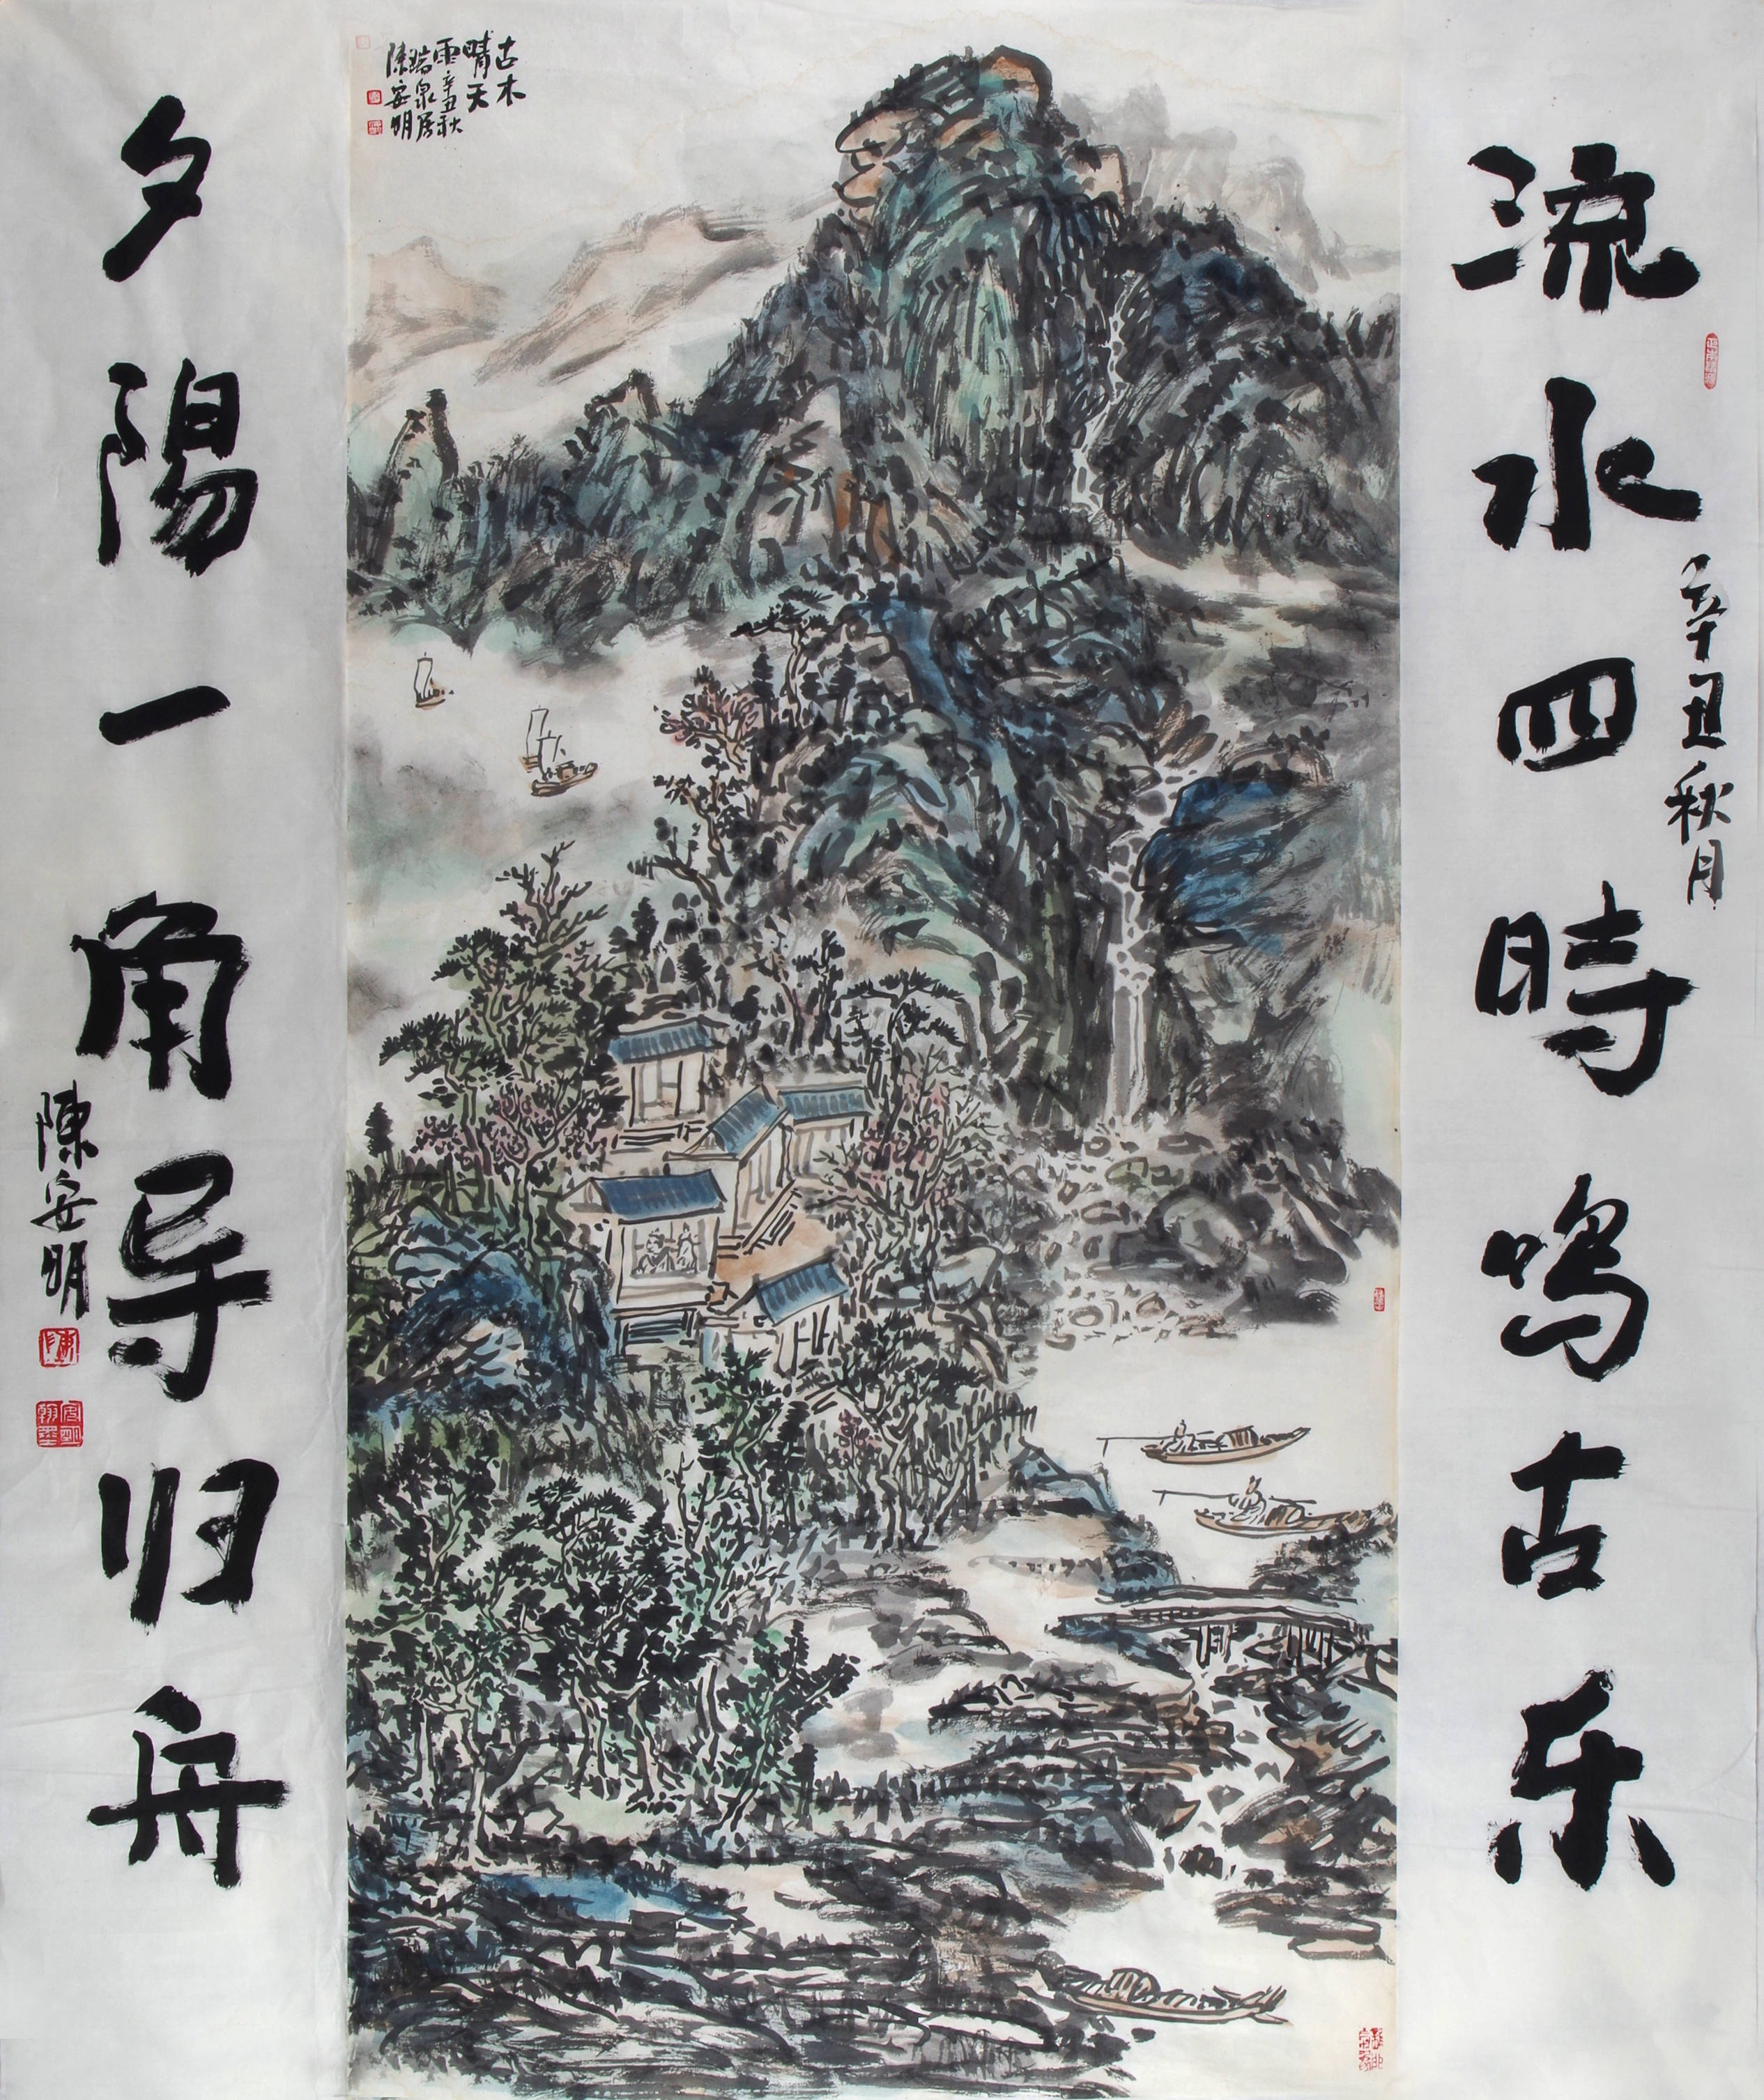 流水四時鳴古乐
辛丑秋月
古木
晴天
雨辛丑秋
瑞泉居
陳安明
夕陽一角导归舟
陳安明